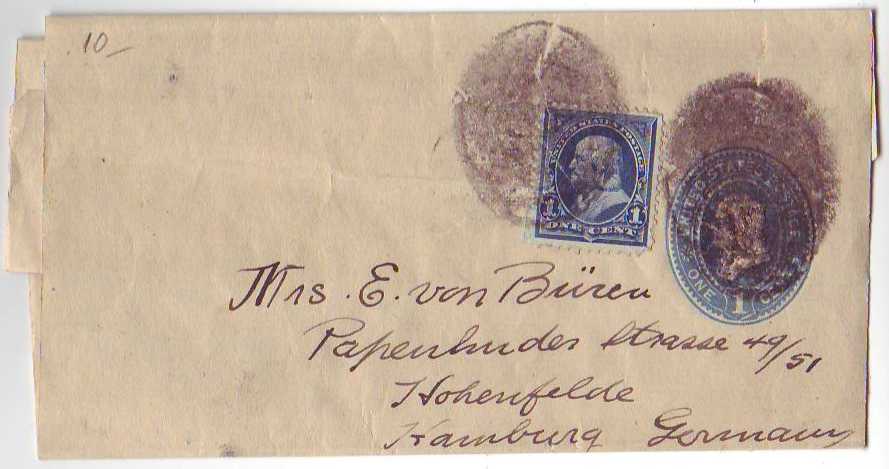 10
UNITED STATES POSTAGE
1 1
ONE CENT
UNITED STATES POSTAGE
ONE 1 CENT
Mrs. E. von Büren
Papenhuder Strasse 49/51
Hohenfelde
Hamburg Germany